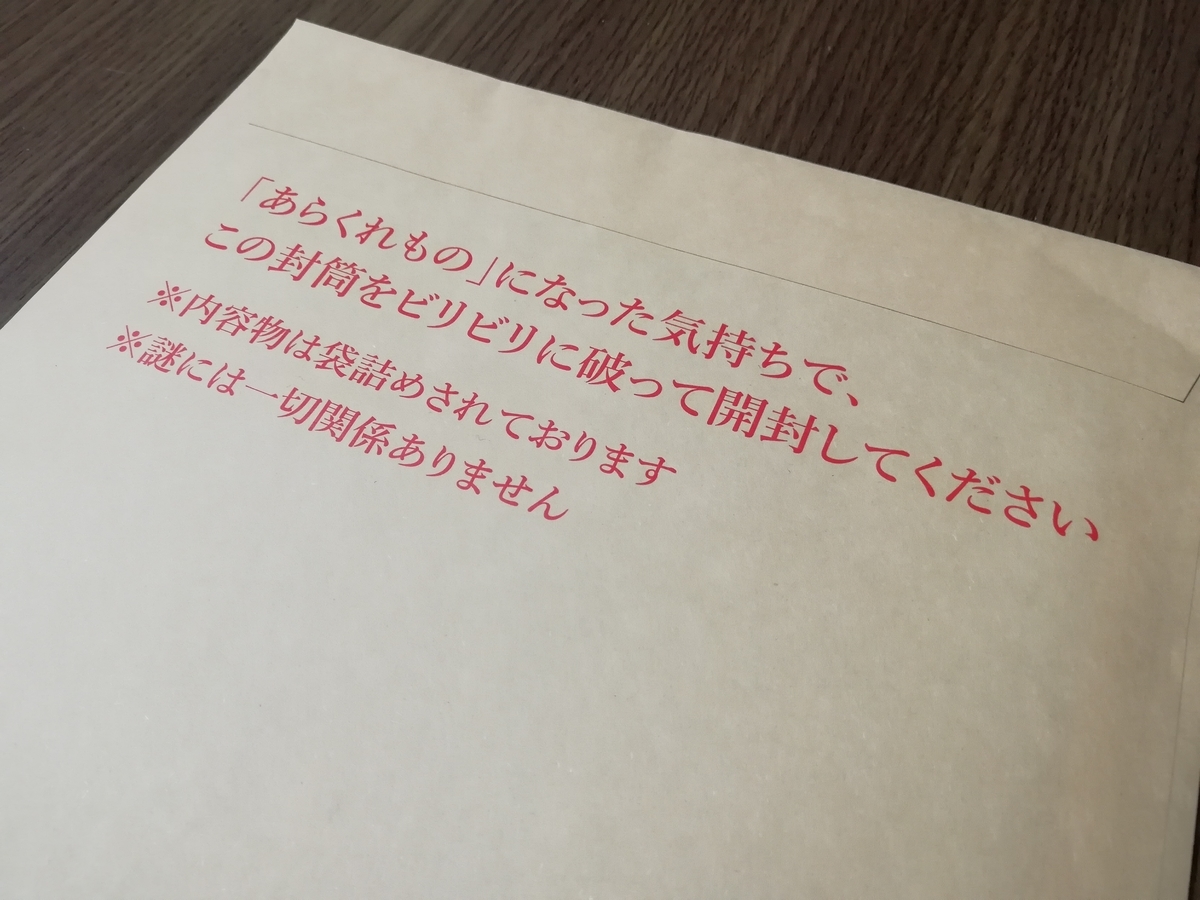 「あらくれもの」になった気持ちで、
この封筒をビリビリに破って開封してください
※内容物は袋詰めされております
※謎には一切関係ありません